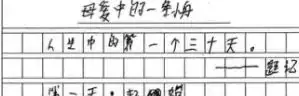 母爱中的一条海
人生中的第一个三十天。
——题记
第一天：